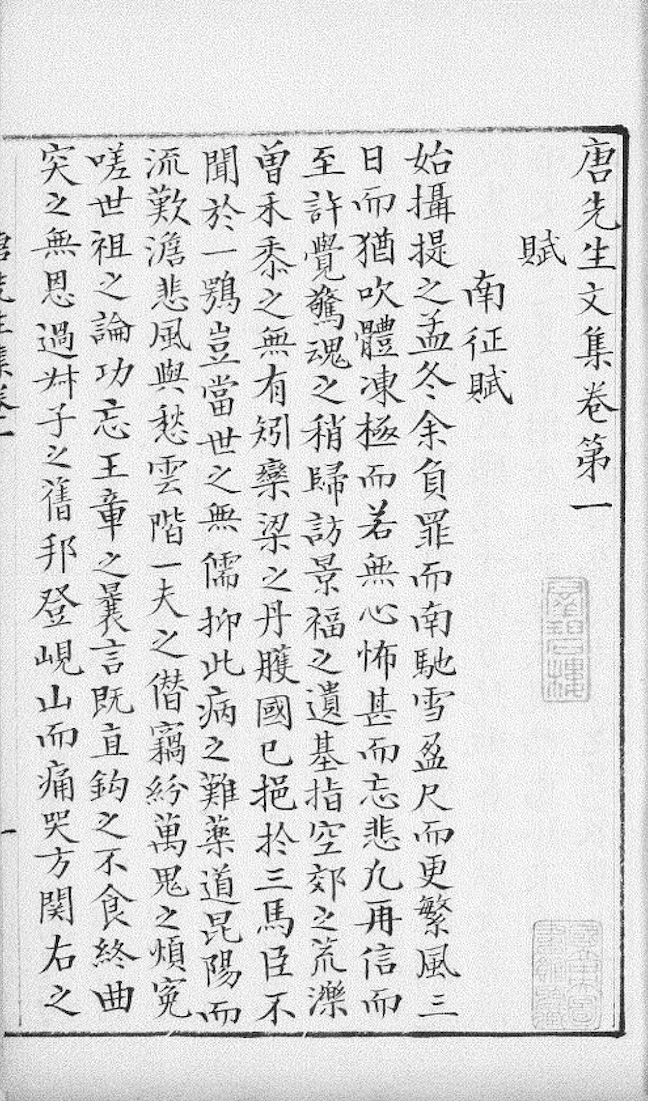 唐先生文集卷第一
賦
南征賦
始攝提之孟冬余負罪而南馳雪盈尺而更繁風三
日而猶吹體凍極而若無心怖甚而忘悲凢再信而
至許覺驚魂之稍歸訪景福之遺基指空郊之荒濼
曽禾黍之無有矧欒梁之丹雘國已挹扵三馬臣不
聞於一鶚豈當世之無儒抑此病之難藥道昆陽而
流歎澹悲風與愁雲階一夫之僭竊紛萬鬼之煩寃
嗟世祖之論功忘王章之曩言既直鈎之不食終曲
突之無恩過𦫵子之舊邦登峴山而痛哭方関右之
唐先生集卷一
一